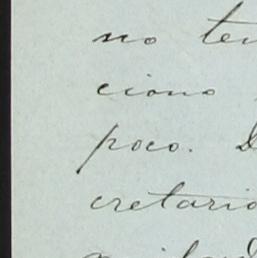 no ten
ciono
poco. D
cretario